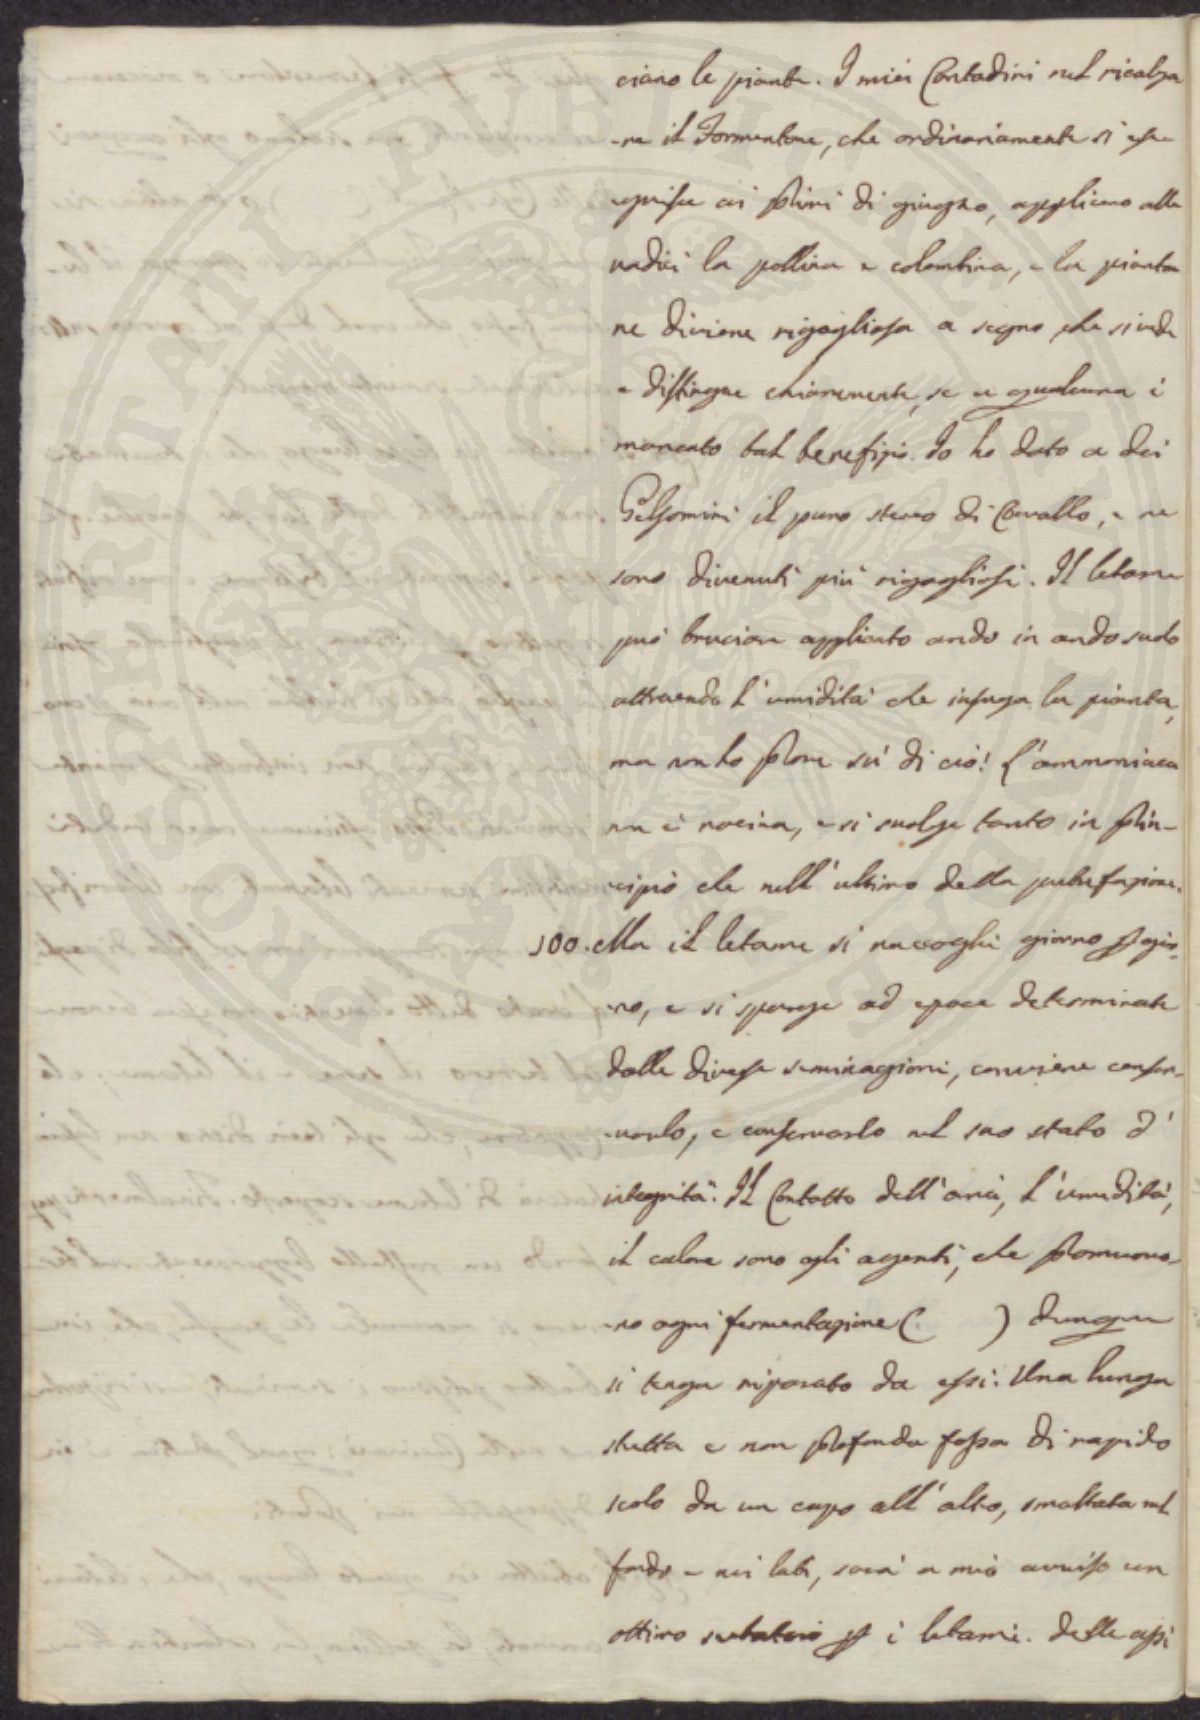 ciano le piante. I miei Contadini nel ricalza
-re il Formentone, che ordinariamente si ese-
-guisce ai primi di giugno, applicano alle
radici la pollina e colombina, e la pianta
ne diviene rigogliosa a segno che si vede
e distingue chiaramente, se a qualcuna è
mancato tal benefizio. Io ho dato a dei
Gelsomini il puro sterco di Cavallo, e ne
sono divenuti più rigogliosi. Il letame
può bruciare applicato arido in arido suolo
attraendo l'umidità che infuga la pianta,
ma non ho prove su di ciò! L'ammoniaca
non è nociva, e si svolge tanto in prin-
-cipio che nell'ultimo della putrefazione.
100. Ma il letame si raccoglie giorno p gior-
-no, e si sparge ad epoca determinate
dalle diverse seminagioni, conviene conser-
-varlo, e conservarlo nel suo stato d'
integrità. Il Contatto dell'aria, l'umidità,
il calore sono gli agenti, che promuovo-
-no ogni fermentazione ( ) dunque
si tenga riparato da essi. Una lunga
stretta e non profonda fossa di rapido
scolo da un capo all'altro, smaltata nel
fondo e nei lati, sarà a mio avviso un
ottimo serbatoio p i letami. Delle assi
POSSPERITATI PUBLICAE AUGENDAE